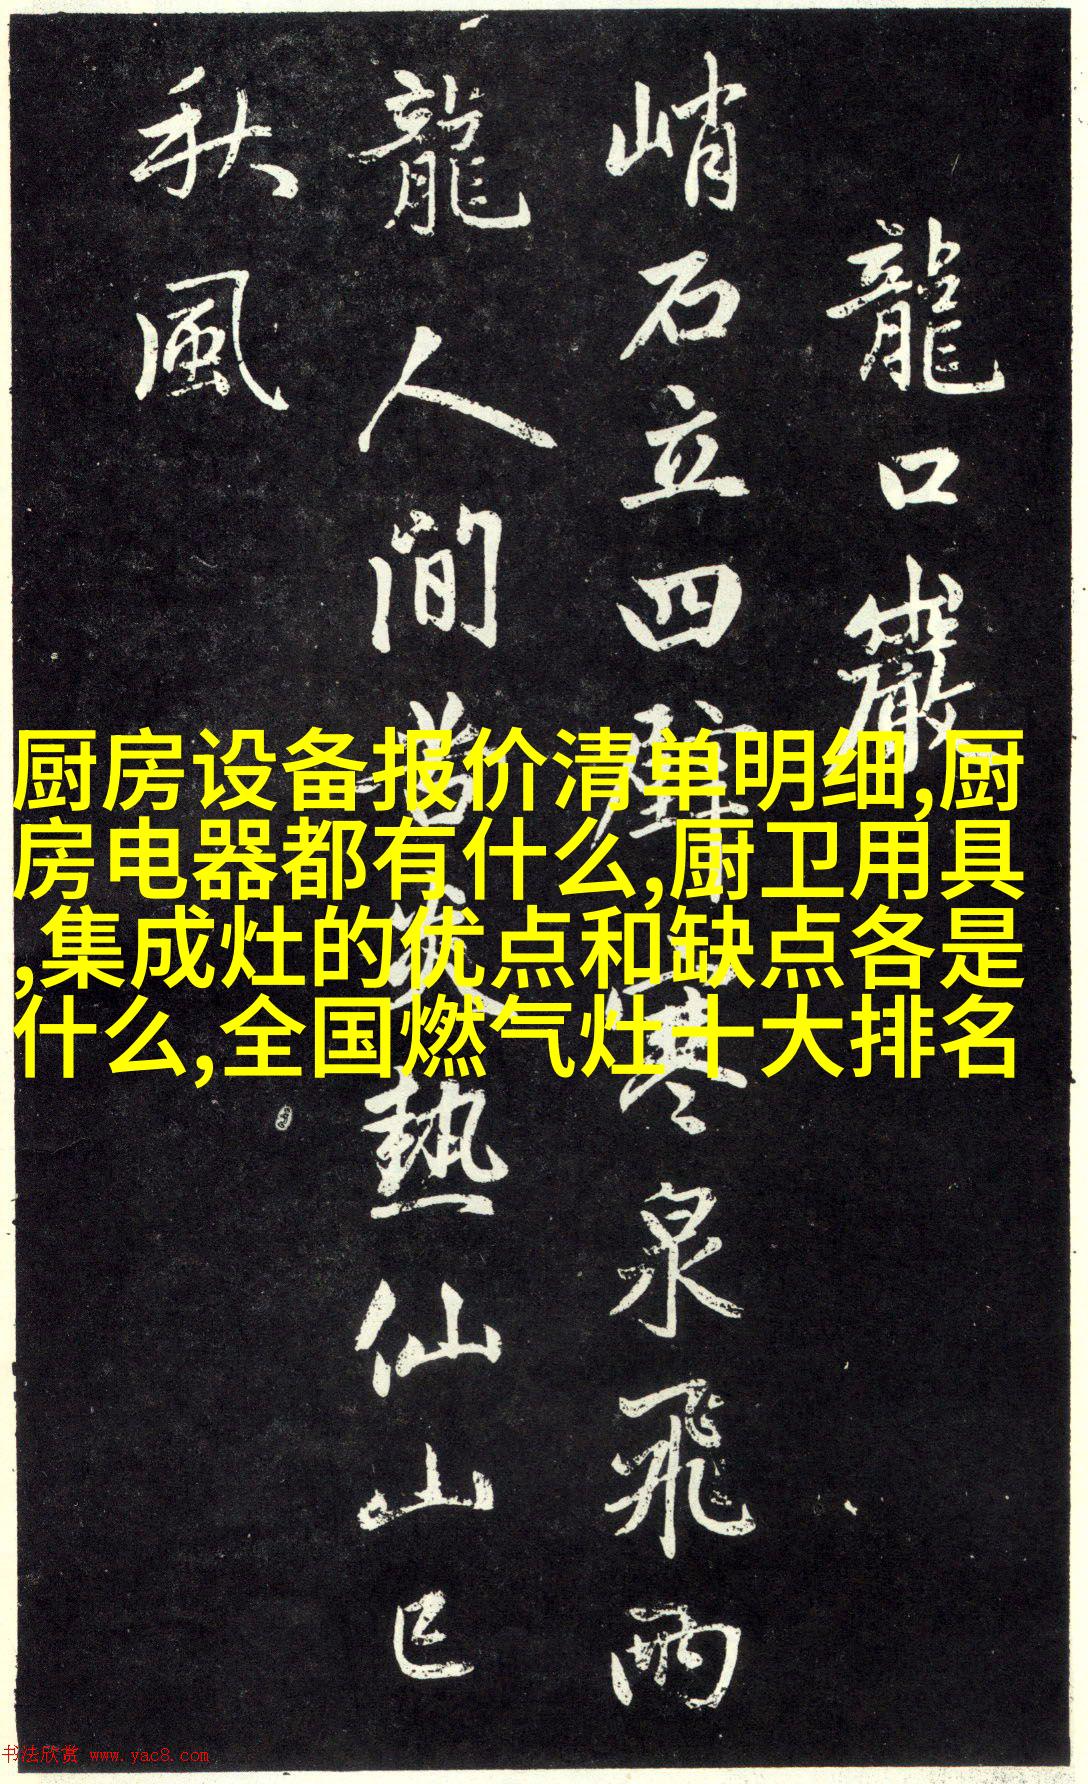 龍口巖
峭石立四壁寒泉飛雨
龍人間苦炎熱仙山已
秋風
厨房设备报价清单明细,厨
房电器都有什么,厨卫用具
,集成灶的优点和缺点各是
什么,全国燃气灶十大排名
书法欣赏 www.yac8.com